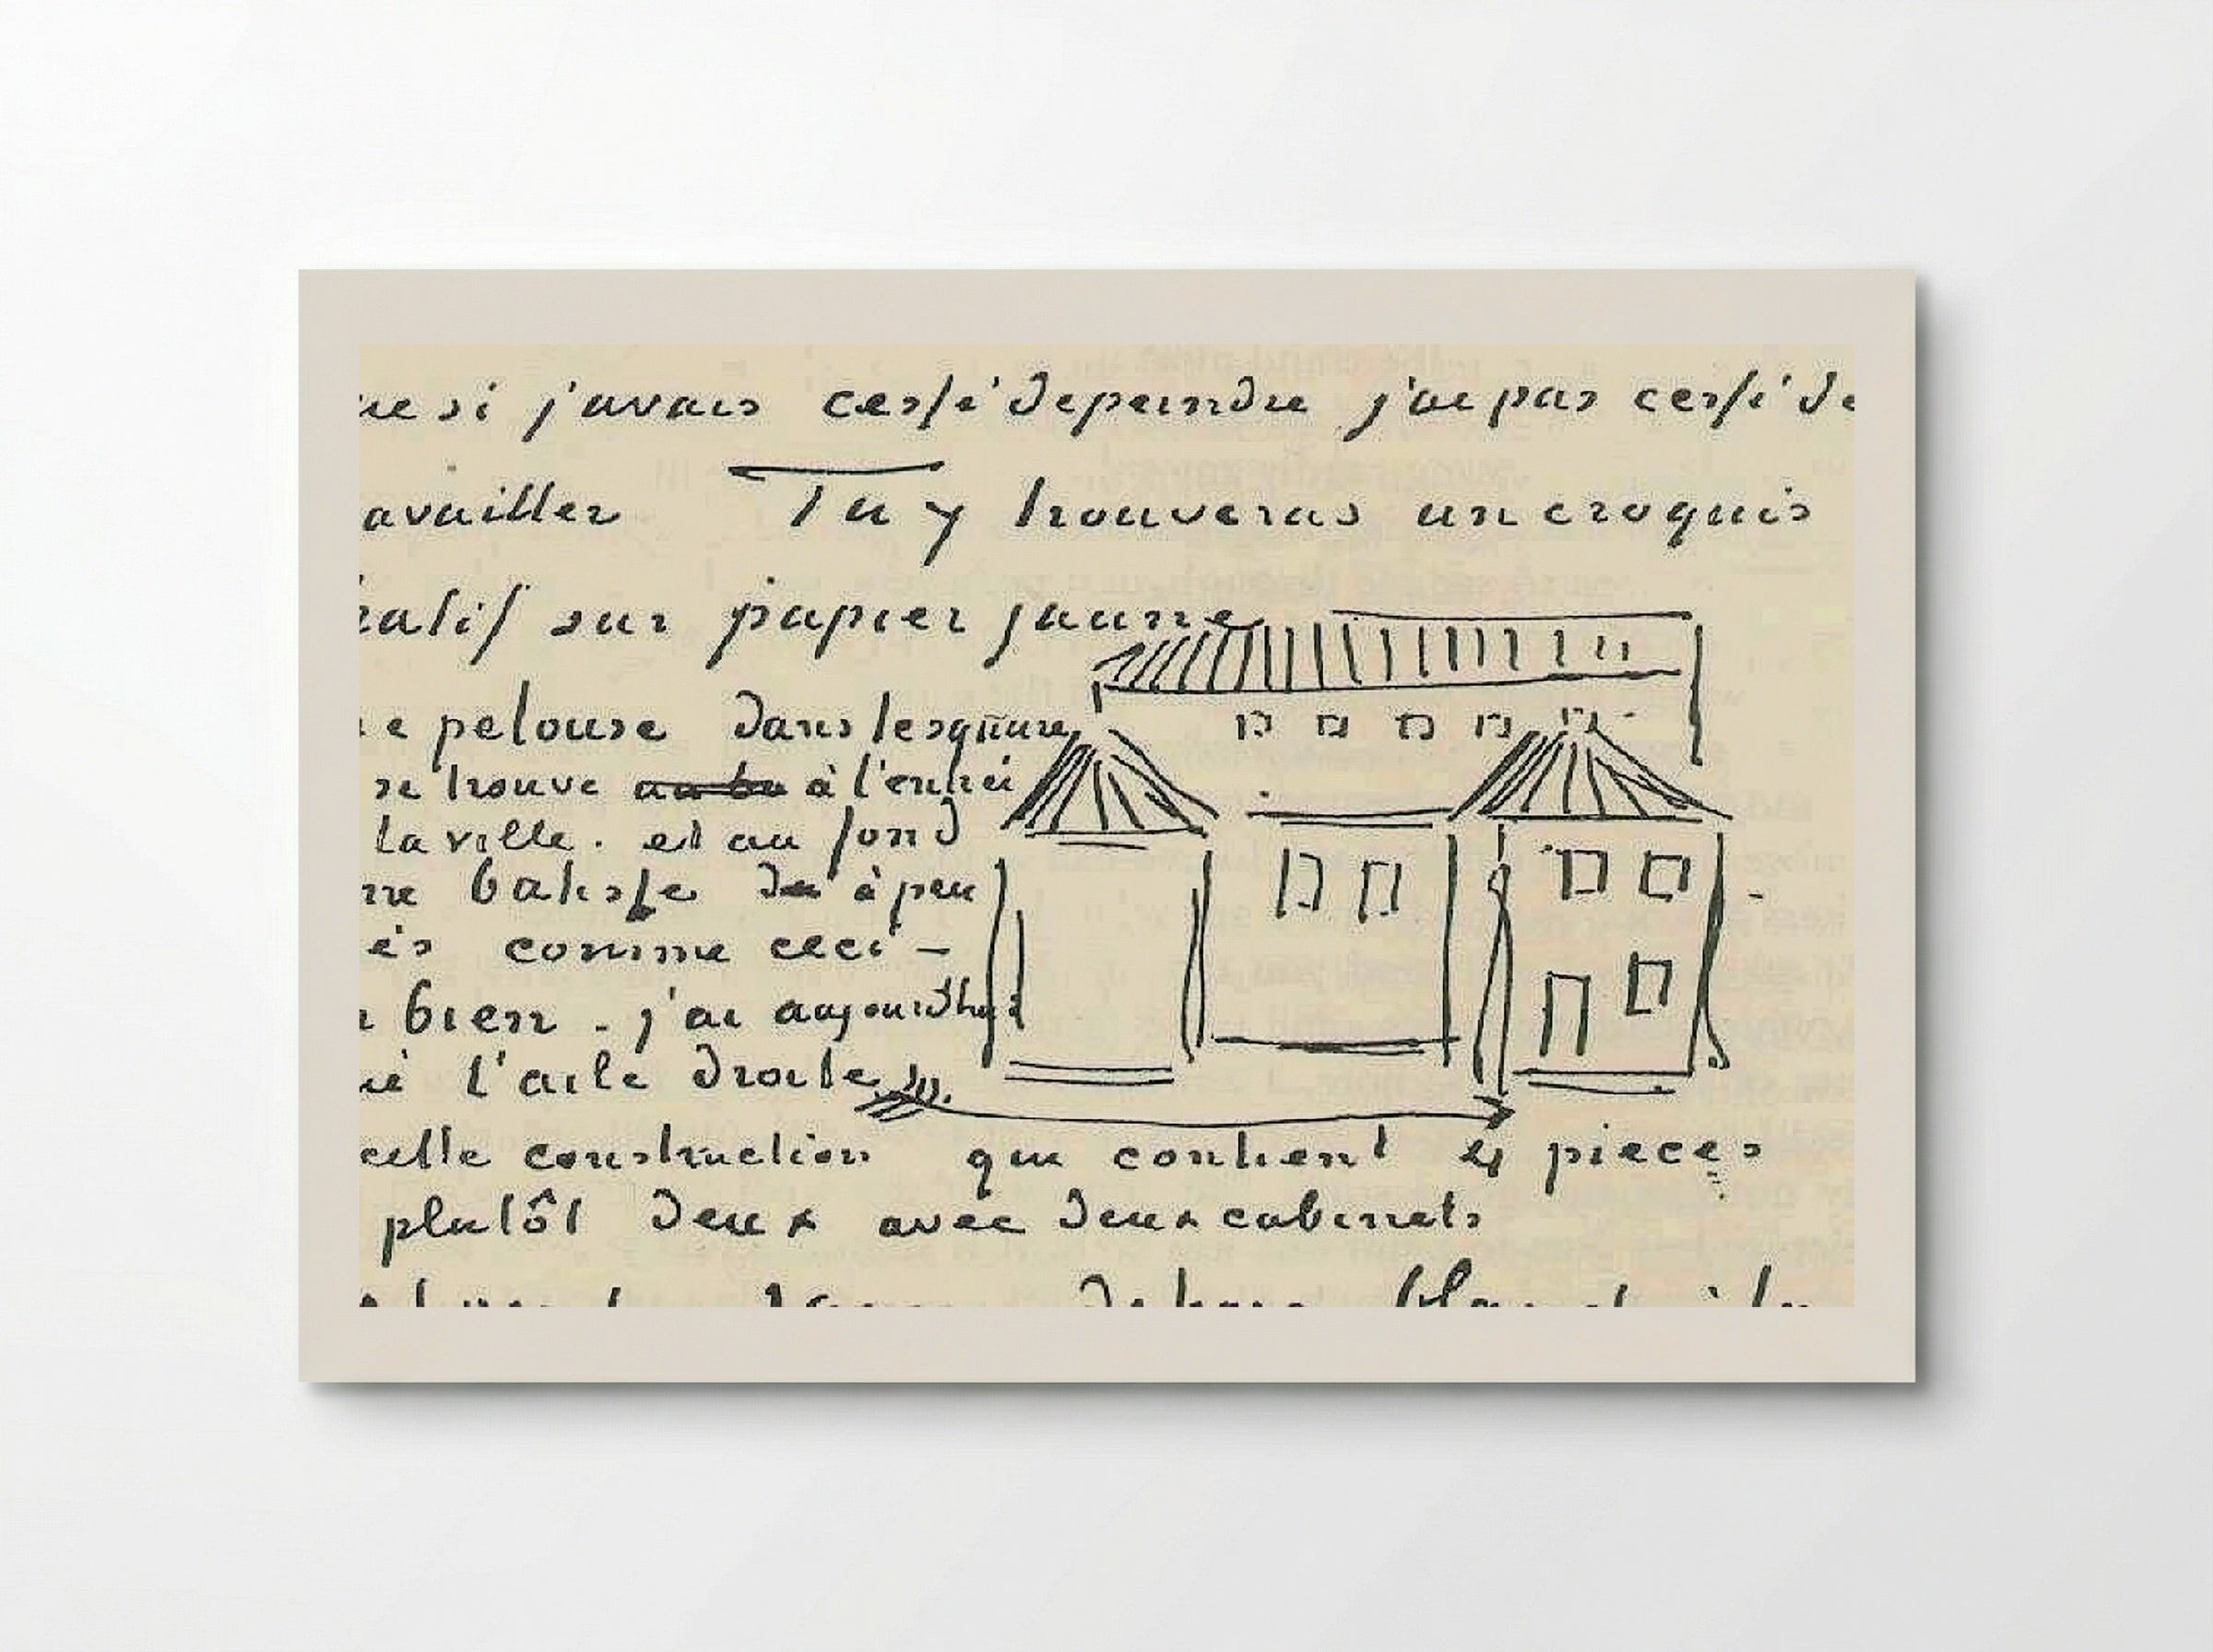 ue si j'avais cessé de peindre j'ai pas cessé de
availler Tu y trouveras un croquis
ratif sur papier jaune
e pelouse dans le square
se trouve à l'entrée
la ville. et au fond
ne batisse à peu
és comme ceci –
bien. j'ai aujourdhui
ué l'aile droite
cette construction qui contient 4 pieces
plutôt deux avec deux cabinets